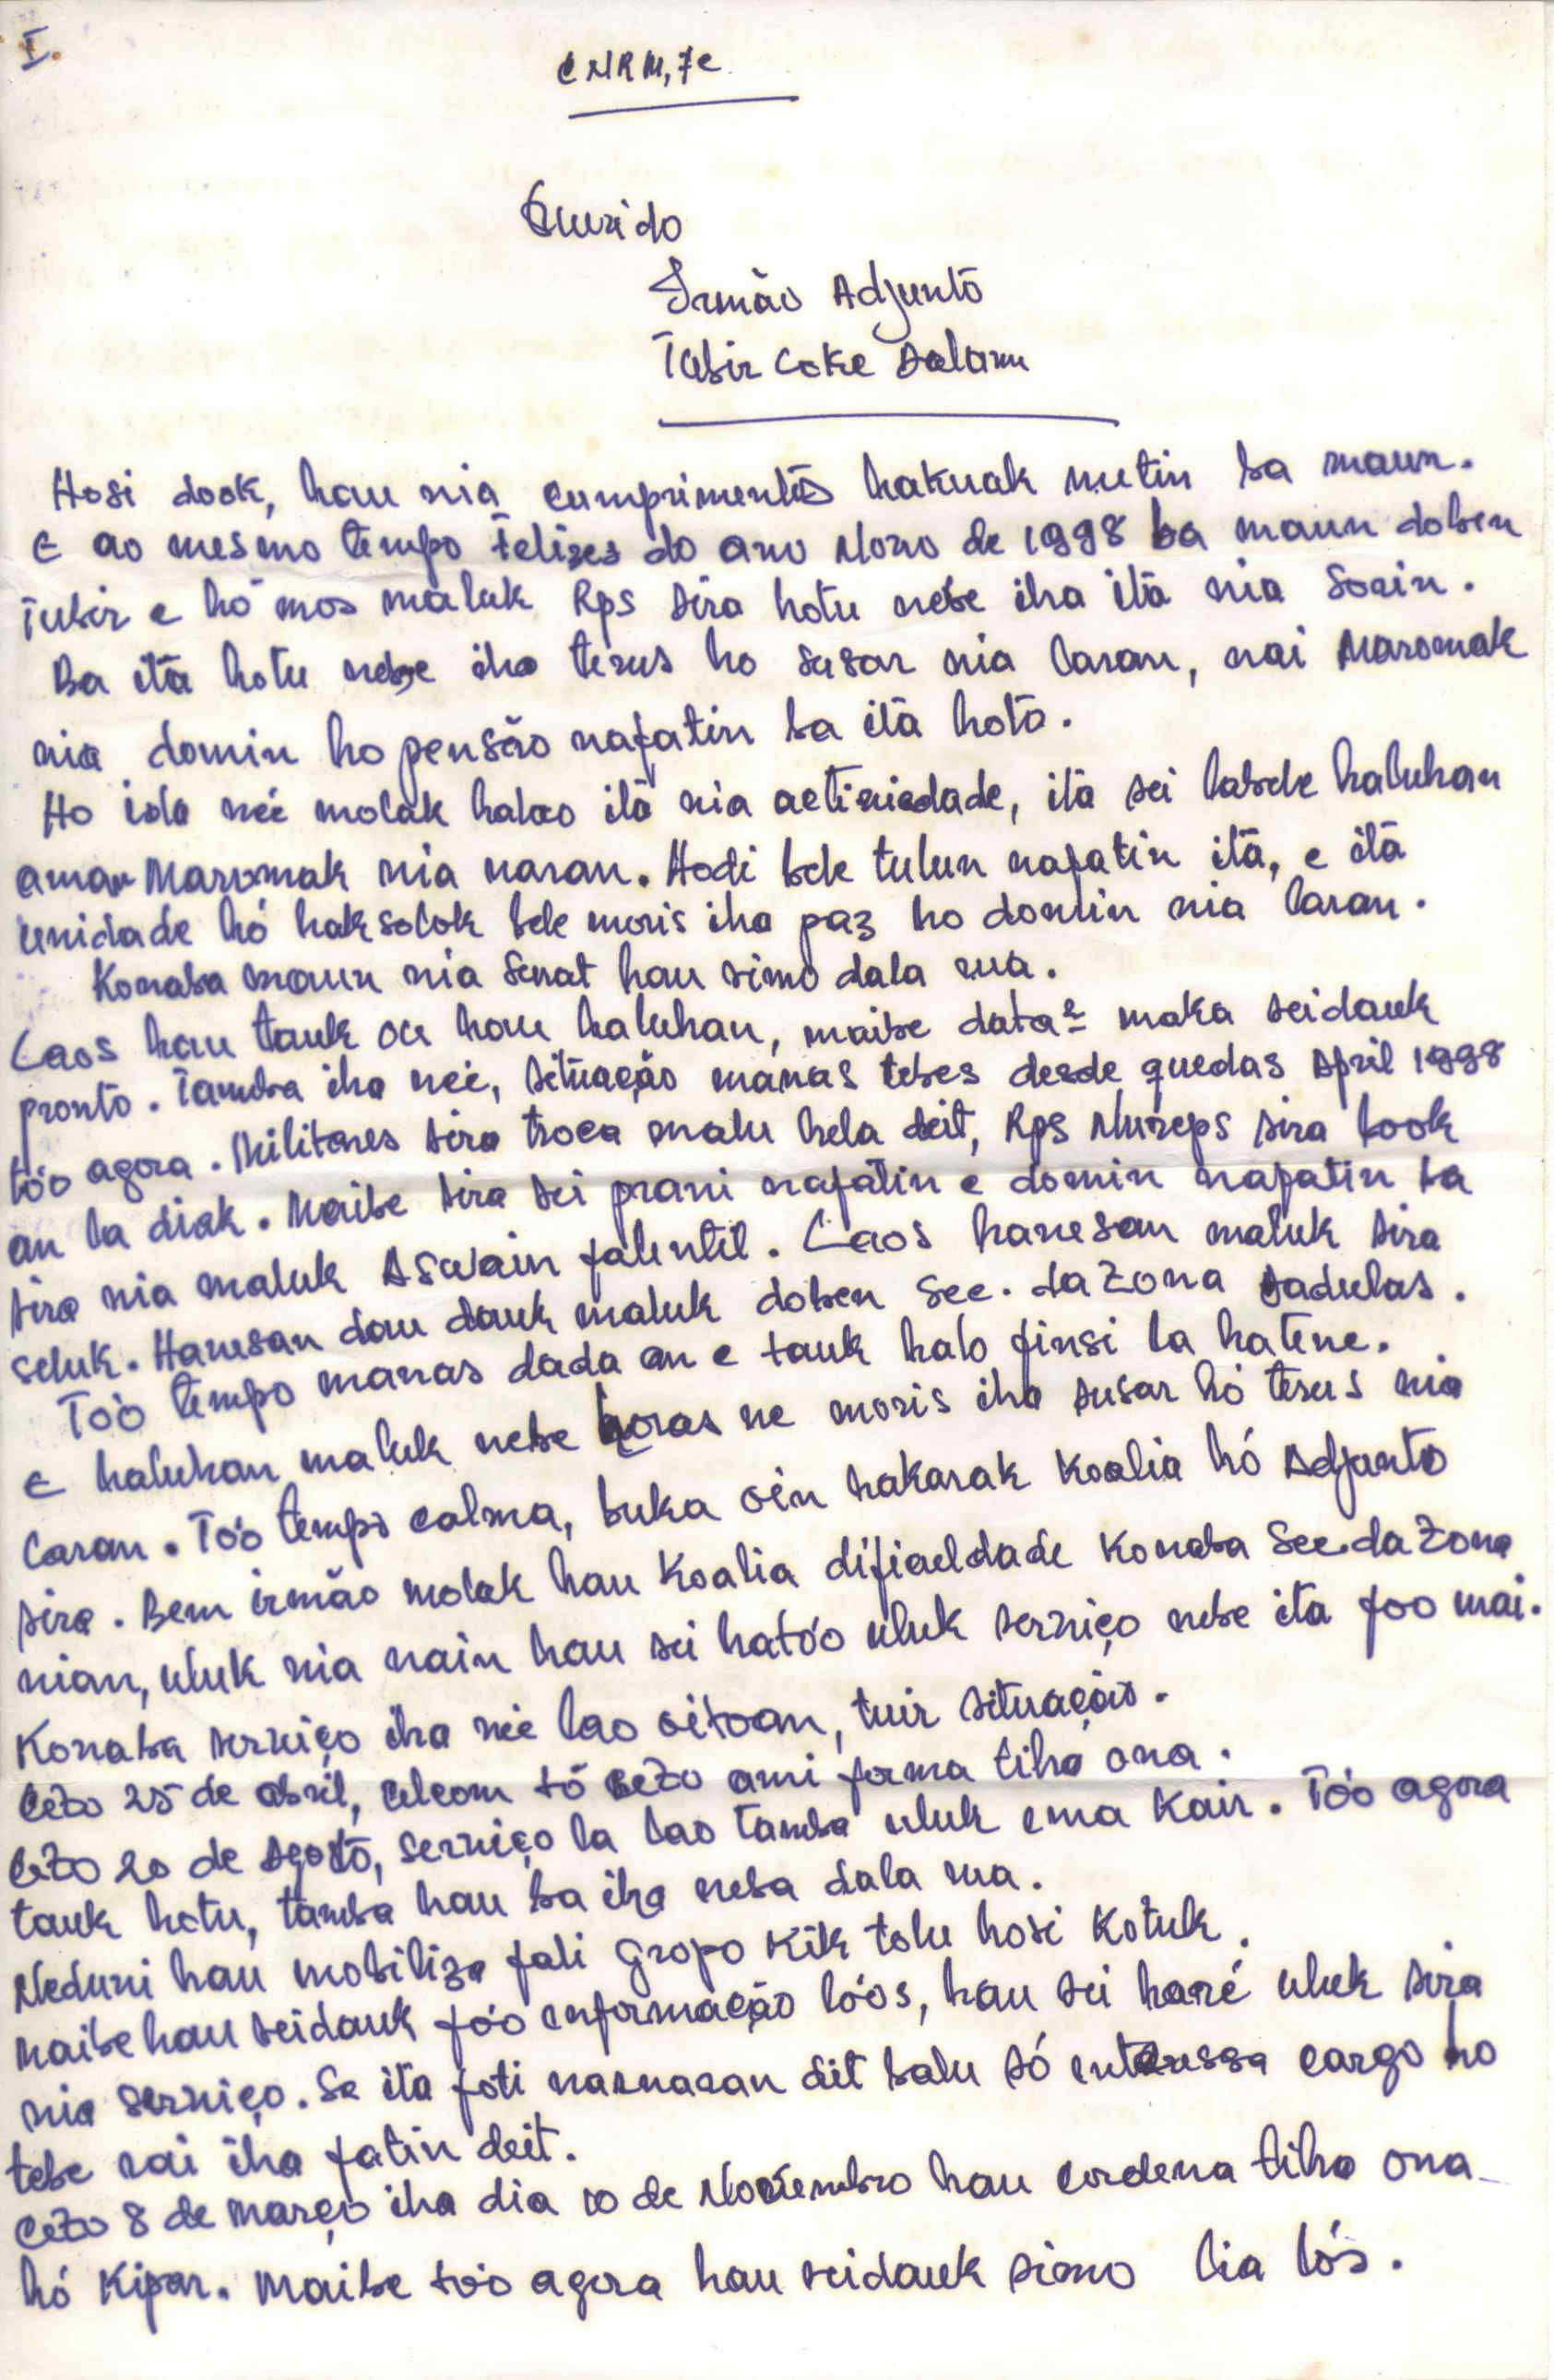 I.
CNRM, 7e
Querido
Irmão Adjunto
Tubir Coke Salanu
Hosi dook, hau nia cumprimentos hakuak metin ba maun.
E ao mesmo tempo felizes do ano Novo de 1998 ba maun doben
Tubir e hó mos maluk Rps sira hotu nebe iha ita nia Sorin.
Ba ita hotu nebe iha terus ho susar nia laran, nai Maromak
nia domin ho pensão nafatin ba ita hotu.
Ho ida neé molak halao ita nia actiniedade, ita sei labele haluhan
aman Maromak nia naran. Hodi bele tulun nafatin ita, e ita
unidade hó haksolok bele moris iha paz ho domin nia laran.
Konaba maun nia Surat hau simo dala rua.
Laos hau tauk ou hau haluhan, maibe data maka seidauk
pronto. Tamba iha neé, situação manas tebes desde quedas April 1998
tóo agora. Militares sira troca malu hela deit, Rps Nureps sira book
an la diak. Maibe sira sei prani nafatin e domin nafatin ba
sira nia maluk Aswain falintil. Laos hanesan maluk sira
seluk. Hanesan dau dauk maluk doben Sec. da Zona Sadulas.
Tóo tempo manas dada an e tauk halo finsi la hatene.
E haluhan maluk nebe horas ne moris iha susar hó terus nia
laran. Tóo tempo calma, buka oin hakarak koalia hó Adjunto
sira. Bem irmão molok hau koalia dificuldade konaba Sec. da Zona
nian, uluk nia nain hau sei hatóo uluk serniço nebe ita foo mai.
Konaba serniço iha neé lao oitoan, tuir situação.
Cezo 25 de abril, celcom tó cezo ami forma tiha ona.
Cezo 20 de Agosto, serniço la lao tamba uluk ema kair. Tóo agora
tauk hotu, tamba hau ba iha neba dala rua.
Neduni hau mobiliza fali Gropo kik tolu hosi kotuk.
Maibe hau seidauk fóo informação lóos, hau sei haré uluk sira
nia serniço. Se ita foti narnaran deit balu só interessa cargo no
tebe rai iha fatin deit.
Cezo 8 de março iha dia 10 de Novembro hau cordena tiha ona
hó Kipar. Maibe tóo agora hau seidauk simo lia lós.